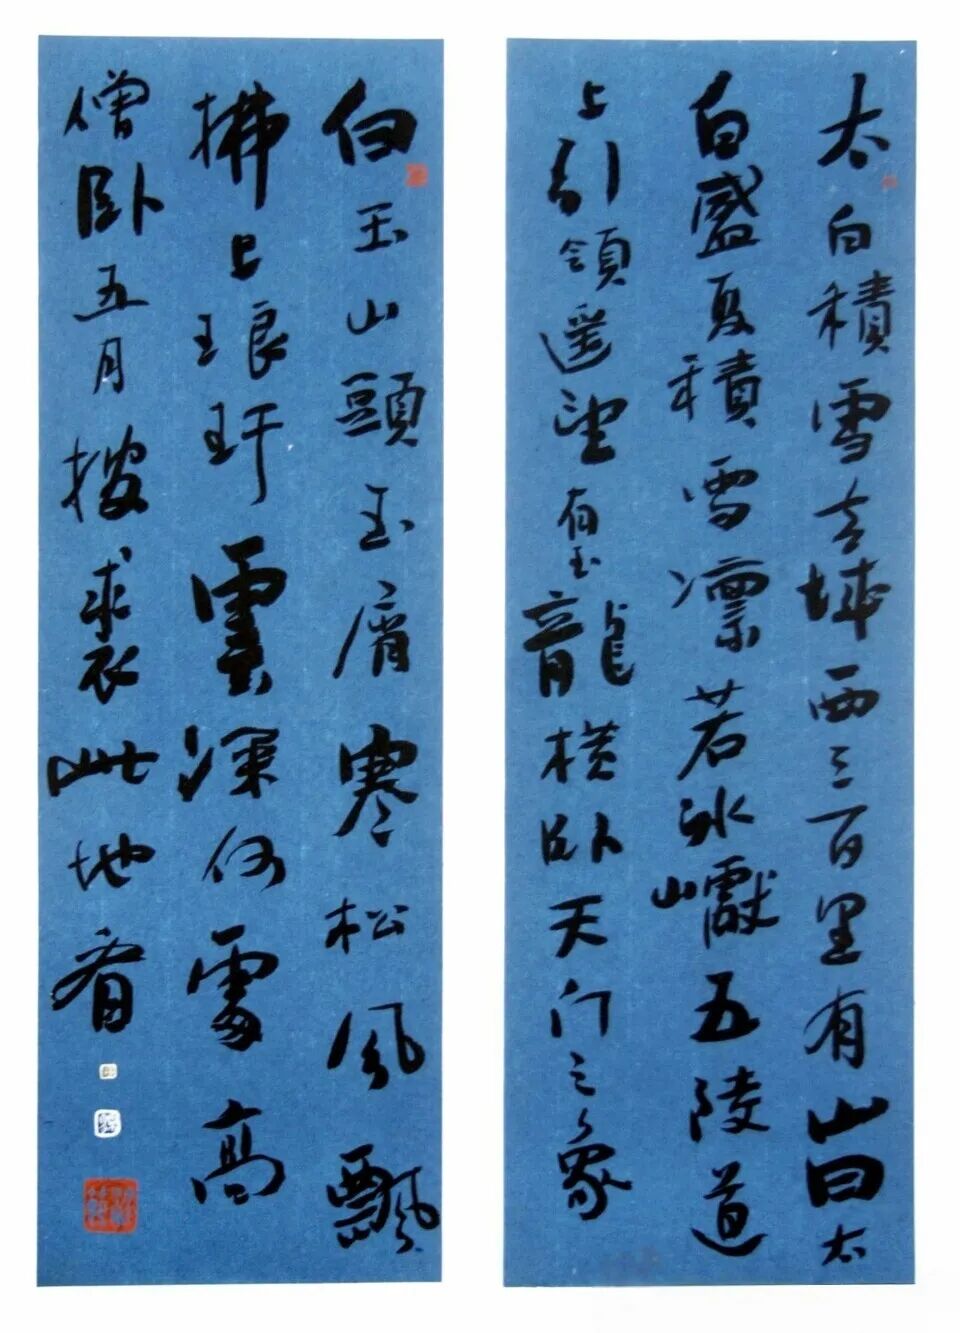 太白積雪去城西三百里有山曰太
白盛夏積雪凛若冰巘五陵道
上引領遥望有玉龍横卧天门之象
白玉山頭玉屑寒松風飄
拂上琅玕雲深何處高
僧卧五月披裘此地看